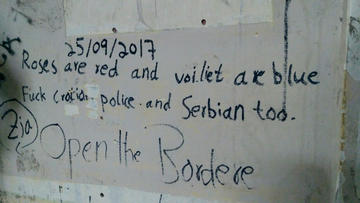 25/09/2017
Roses are red and voilet are blue
Fuck crotian police and Serbian too.
Zja
Open the Bordere